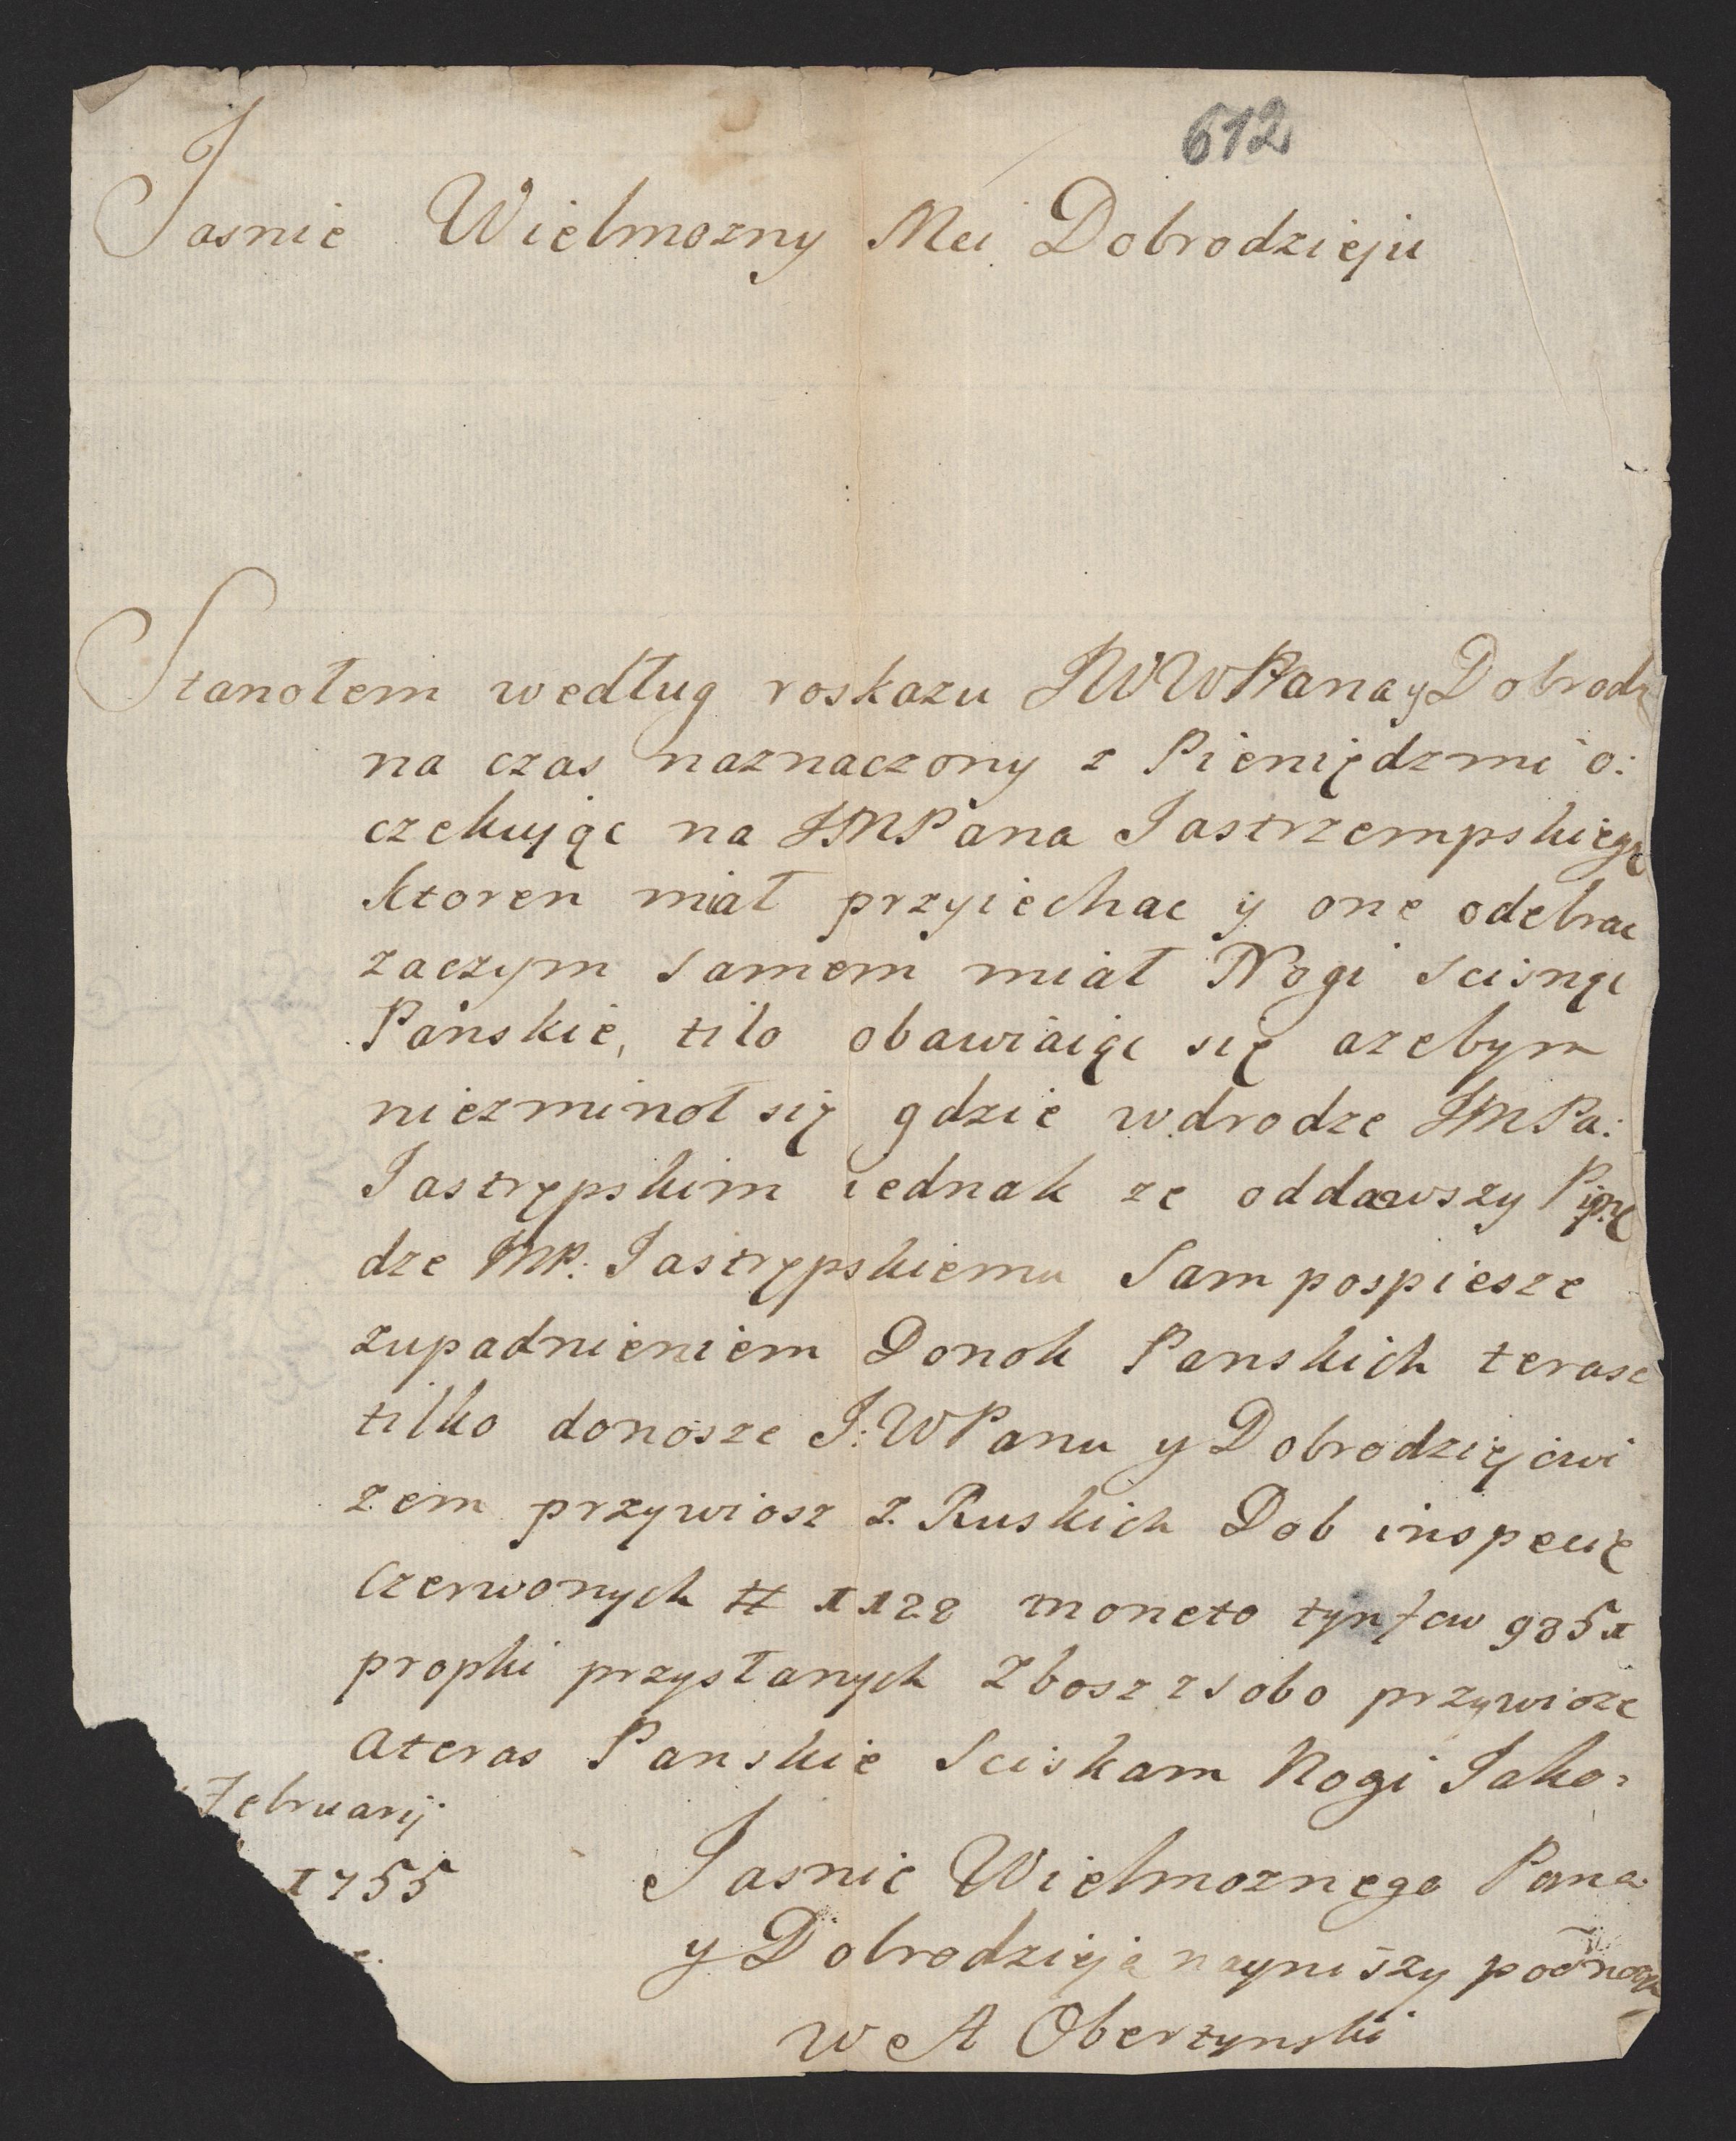 612
Jasnie Wielmozny Mci Dobrodzieju
Stanołem według roskazu JWWPana y Dobrodz
na czas naznaczony z Pieniędzmi o:
czekując na JMPana Jastrzempskiego
ktoren miał przyiechac y one odebrac
zaczym samem miał Nogi scisnąc
Panskie, tilo obawiaiąc się azebym
niezminoł się gdzie wdrodze JMPa:
Jastrzępskim iednak ze oddawszy Pienię
dze JMP: Jastrzępskiemu Sam pospiesze
zupadnieniem Donok Panskich teras
tilko donosze J:WPanu y Dobrodziejowi
zem przywiosz z Ruskich Dob
czerwonych # 1122 moneto tynfow 9851
propki przysłanych Zbosz zsobo przywioze
Ateras Panskie Sciskam Nogi Jako:
Februarij
1755
Jasnie Wielmoznego Pana
y Dobrodzieja nayniszy podnozek
W A Obertynski